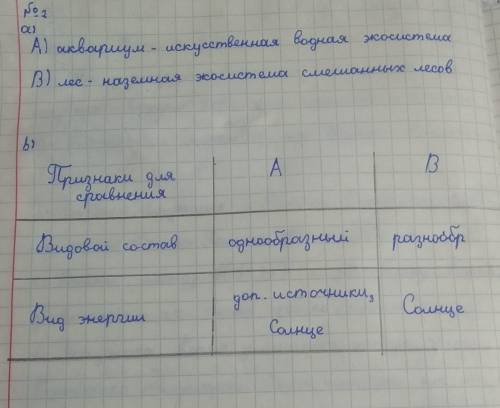 №2
a)
А) аквариум - искусственная водная экосистема
В) лес - наземная экосистема смешанных лесов
b)
Признаки для сравнения А В
Видовой состав однообразный разнообр
Вид энергии доп. источники, Солнце Солнце